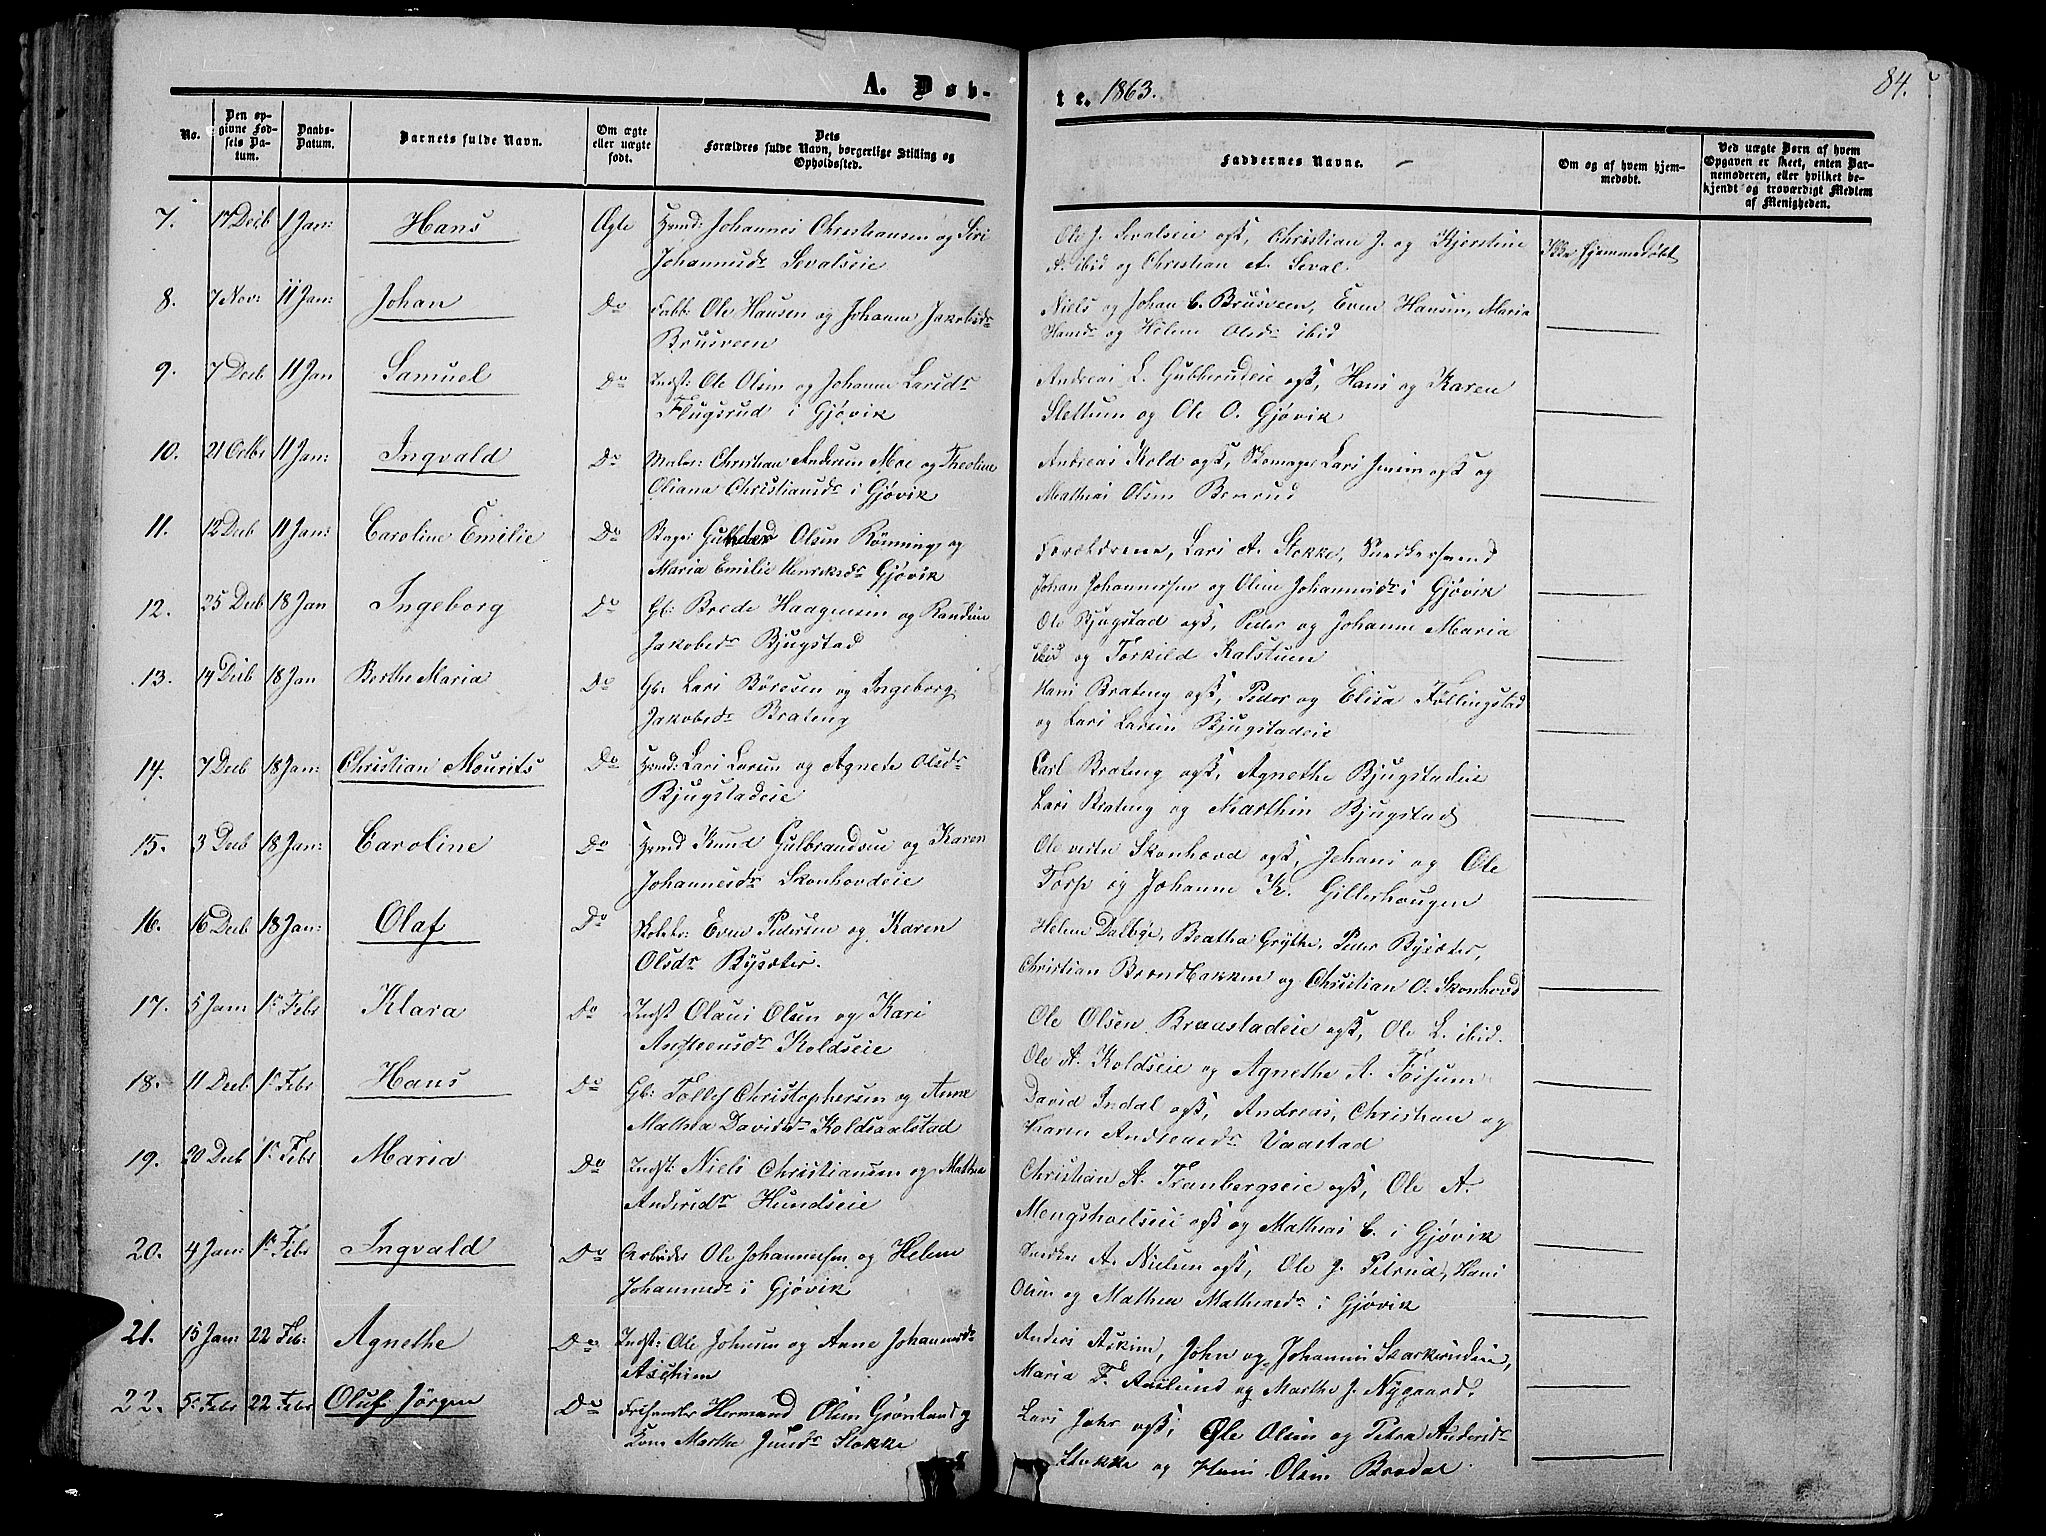 A. Døb-
te. 1863.
84.
No.
Den op-
givne Fød-
sels Da-
tum.
Daabs-
Datum.
Barnets fulde Navn.
Om ægte
eller uægte
født.
Dets
Forældres fulde Navn, borgerlige Stilling og
Opholdssted.
Faddernes Navne.
Om og af hvem hjem-
medøbt.
Ved uægte Børn af hvem
Opgaven er skeet, enten Bar-
nemoderen, eller hvilket be-
kjendt og troværdigt Medlem
af Menigheden.
7. 17 Decb 1 Jan: Hans Ægte Hmd: Johannes Christiansen og Siri
Johannesdr Sevalseie
Ole J. Sevalseie ogß, Christian J. og Kjerstine
A. ibid og Christian A. Seval.
Ikke hjemmedøbt
8. 7 Nov: 11 Jan: Johan Do Fabb: Ole Hansen og Johanne Jakobsdr
Brusveen
Niels og Johan C. Brusveen, Even Hansen, Maria
Hansdr og Helene Olsdr ibid
9. 7 Decb 11 Jan Samuel Do Indst: Ole Olsen og Johanne Larsdr
Flugsrud i Gjøvik
Andreas L. Gubberudeie ogß, Hans og Karen
Slettum og Ole O. Gjøvik
10. 21 Octbr 11 Jan: Ingvald Do Maler: Christian Andersen Moe og Theoline
Oliana Christiansdr i Gjøvik
Andreas Kold ogß, Skomager Lars Jensen ogß og
Mathias Olsen Bernrud
11. 12 Decb 11 Jan: Caroline Emilie Do Bager Gulder Olsen Rönning og
Maria Emilie Henriksdr Gjøvik
Forældrene, Lars A. Stokke, Snedkersvend
Johan Johannessen og Oline Johannesdr i Gjøvik
12. 25 Decb 18 Jan Ingeborg Do Gb: Brede Haagensen og Randine
Jakobsdr Bjugstad
Ole Bjugstad ogß, Peder og Johanne Maria
ibid og Torkild Kalstuen
13. 14 Decb 18 Jan Berthe Maria Do Gb: Lars Böresen og Ingeborg
Jakobsdr Brateng
Hans Brateng ogß, Peder og Elisa Föllingstad
og Lars Larsen Bjugstadeie
14. 7 Decb 18 Jan: Christian Mourits Do Hmd: Lars Larsen og Agnete Olsdr
Bjugstadeie
Carl Brateng ogß, Agnethe Bjugstadeie
Lars Brateng og Marthin Bjugstad
15. 3 Decb 18 Jan: Caroline Do Hmd Knud Gulbrandsen og Karen
Johannesdr Skonhovdeie
Ole vestre Skonhovd ogß, Johans og Ole
Torp og Johanne K. Gillerhaugen
16. 16 Decb 18 Jan: Olaf Do Skolelr: Even Pedersen og Karen
Olsdr Bysæter.
Helene Dalbye, Beatha Grythe, Peder Bysæter,
Christian Brændbakken og Christian O. Skonhovd
17. 5 Jan: 1 Febr Klara Do Indst Olaus Olsen og Kari
Andreasdr Koldseie
Ole Olsen Braastadeie ogß, Ole L. ibid.
Ole A. Koldseie og Agnethe A. Forsum
18. 11 Decb. 1 Febr Hans Do Gb: Tollef Christophersen og Anne
Mathea Davidsdr Koldsaalstad
David Indal ogß, Andreas, Christian og
Karen Andreasdr Vaastad
19. 20 Decb 1 Febr Maria Do Indst: Niels Christiansen og Mathea
Andersdr Hundseie
Christian A. Tranbergseie ogß, Ole A.
Mengshoelseie ogß og Mathias C. i Gjøvik
20. 4 Jan: 1 Febr Ingvald Do Arbeider Ole Johannessen og Helene
Johannesdr i Gjøvik
Snedker A. Nielsen ogß, Ole J. Petrud, Hans
Olsen og Mathea Matheasdr i Gjøvik
21. 15 Jan: 22 Feb: Agnethe Do Indst: Ole Johnsen og Anne Johannesdr
Aschim
Anders Askim, John og Johannes Skarkerudeie,
Maria F. Aaslund og Marthe J. Nygaard.
22. 5 Febr 22 Febr Oluf Jörgen Do Frihandler Hermand Olsen Grønland og
Kone Marthe Jensdr Stokke
Lars Jahr ogß, Ole Olsen og Petra Andersdr
Stokke og Hans Olsen Bredal